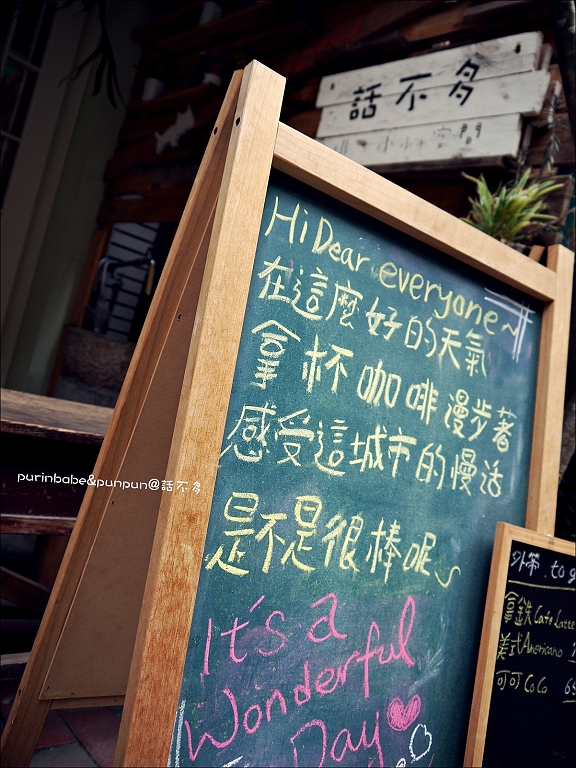 話不多
小小空間
Hi Dear everyone~
在這麼好的天氣
拿杯咖啡漫步著
感受這城市的慢活
是不是很棒呢~
It's a
Wonderful
Day
purinbabe&punpun@話不多
外帶 to g
拿鐵 Cafe Latte
美式 Americano
可可 CoCo 65